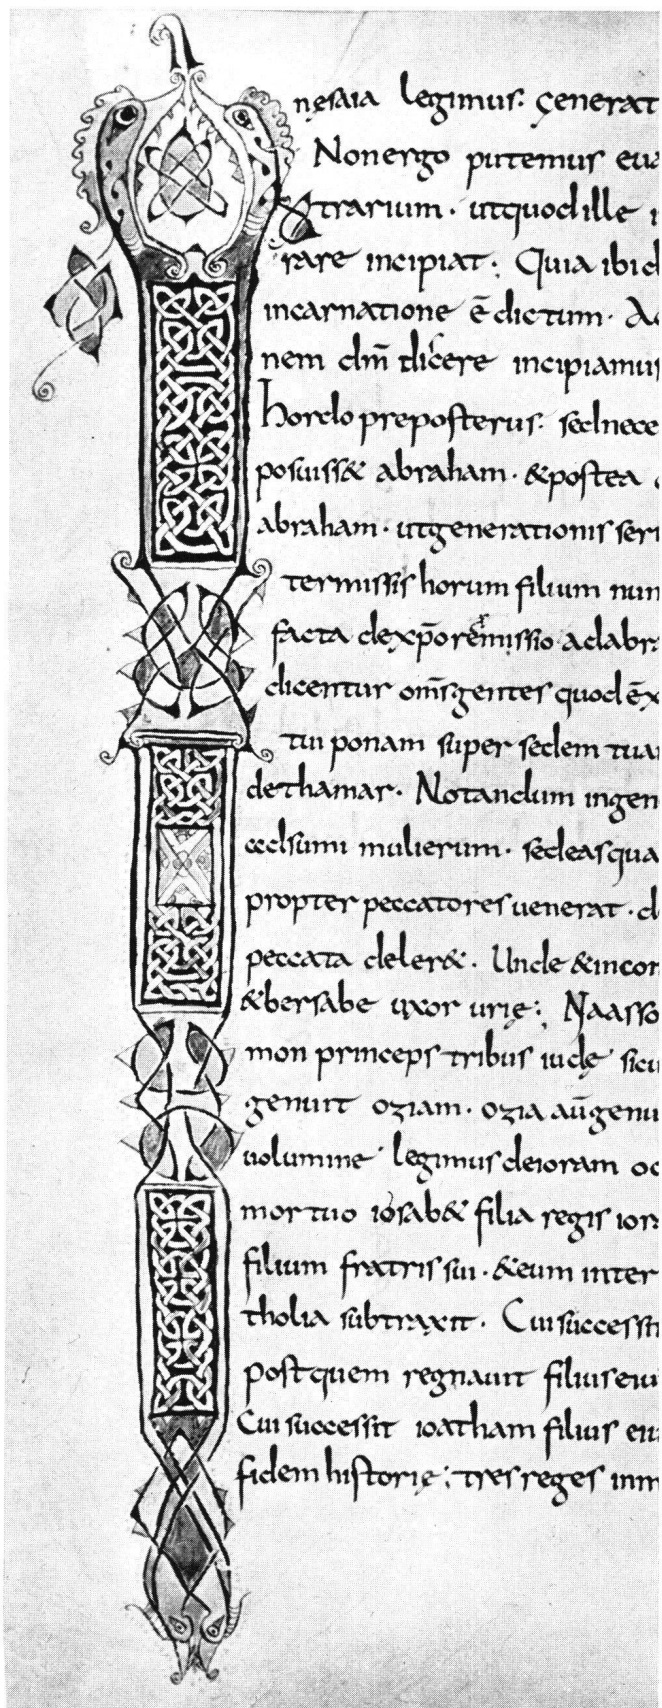 nesaia legimus. Generat
Non ergo putemus eua
trarium. ut quod ille i
rare incipiat. Quia ibid
incarnatione ē dictum. Ad
nem dn̄i dicere incipiamus
hordo preposterus. sed nece
posuiss& abraham. & postea
abraham. ut generationis seri
termissis horum filium nun
facta de xp̄o remissio ad abra
dicentur om̄s gentes quod ēx
tui ponam super sedem tuam
dethamar. Notandum in gen
mulierum. sed eas qua
propter peccatores uenerat. d
peccata deler&. Unde & incor
& bersabe uxor urię; Naasso
mon princeps tribus iudę sicu
genuit oziam. ozia aūgenu
uolumine legimus deioram oc
mortuo iosab& filia regis ior
filium fratris sui. & eum inter
tholia subtraxit. Cui successit
post quem regnauit filius eiu
Cui successit ioatham filius eiu
fidem historię; tres reges inm